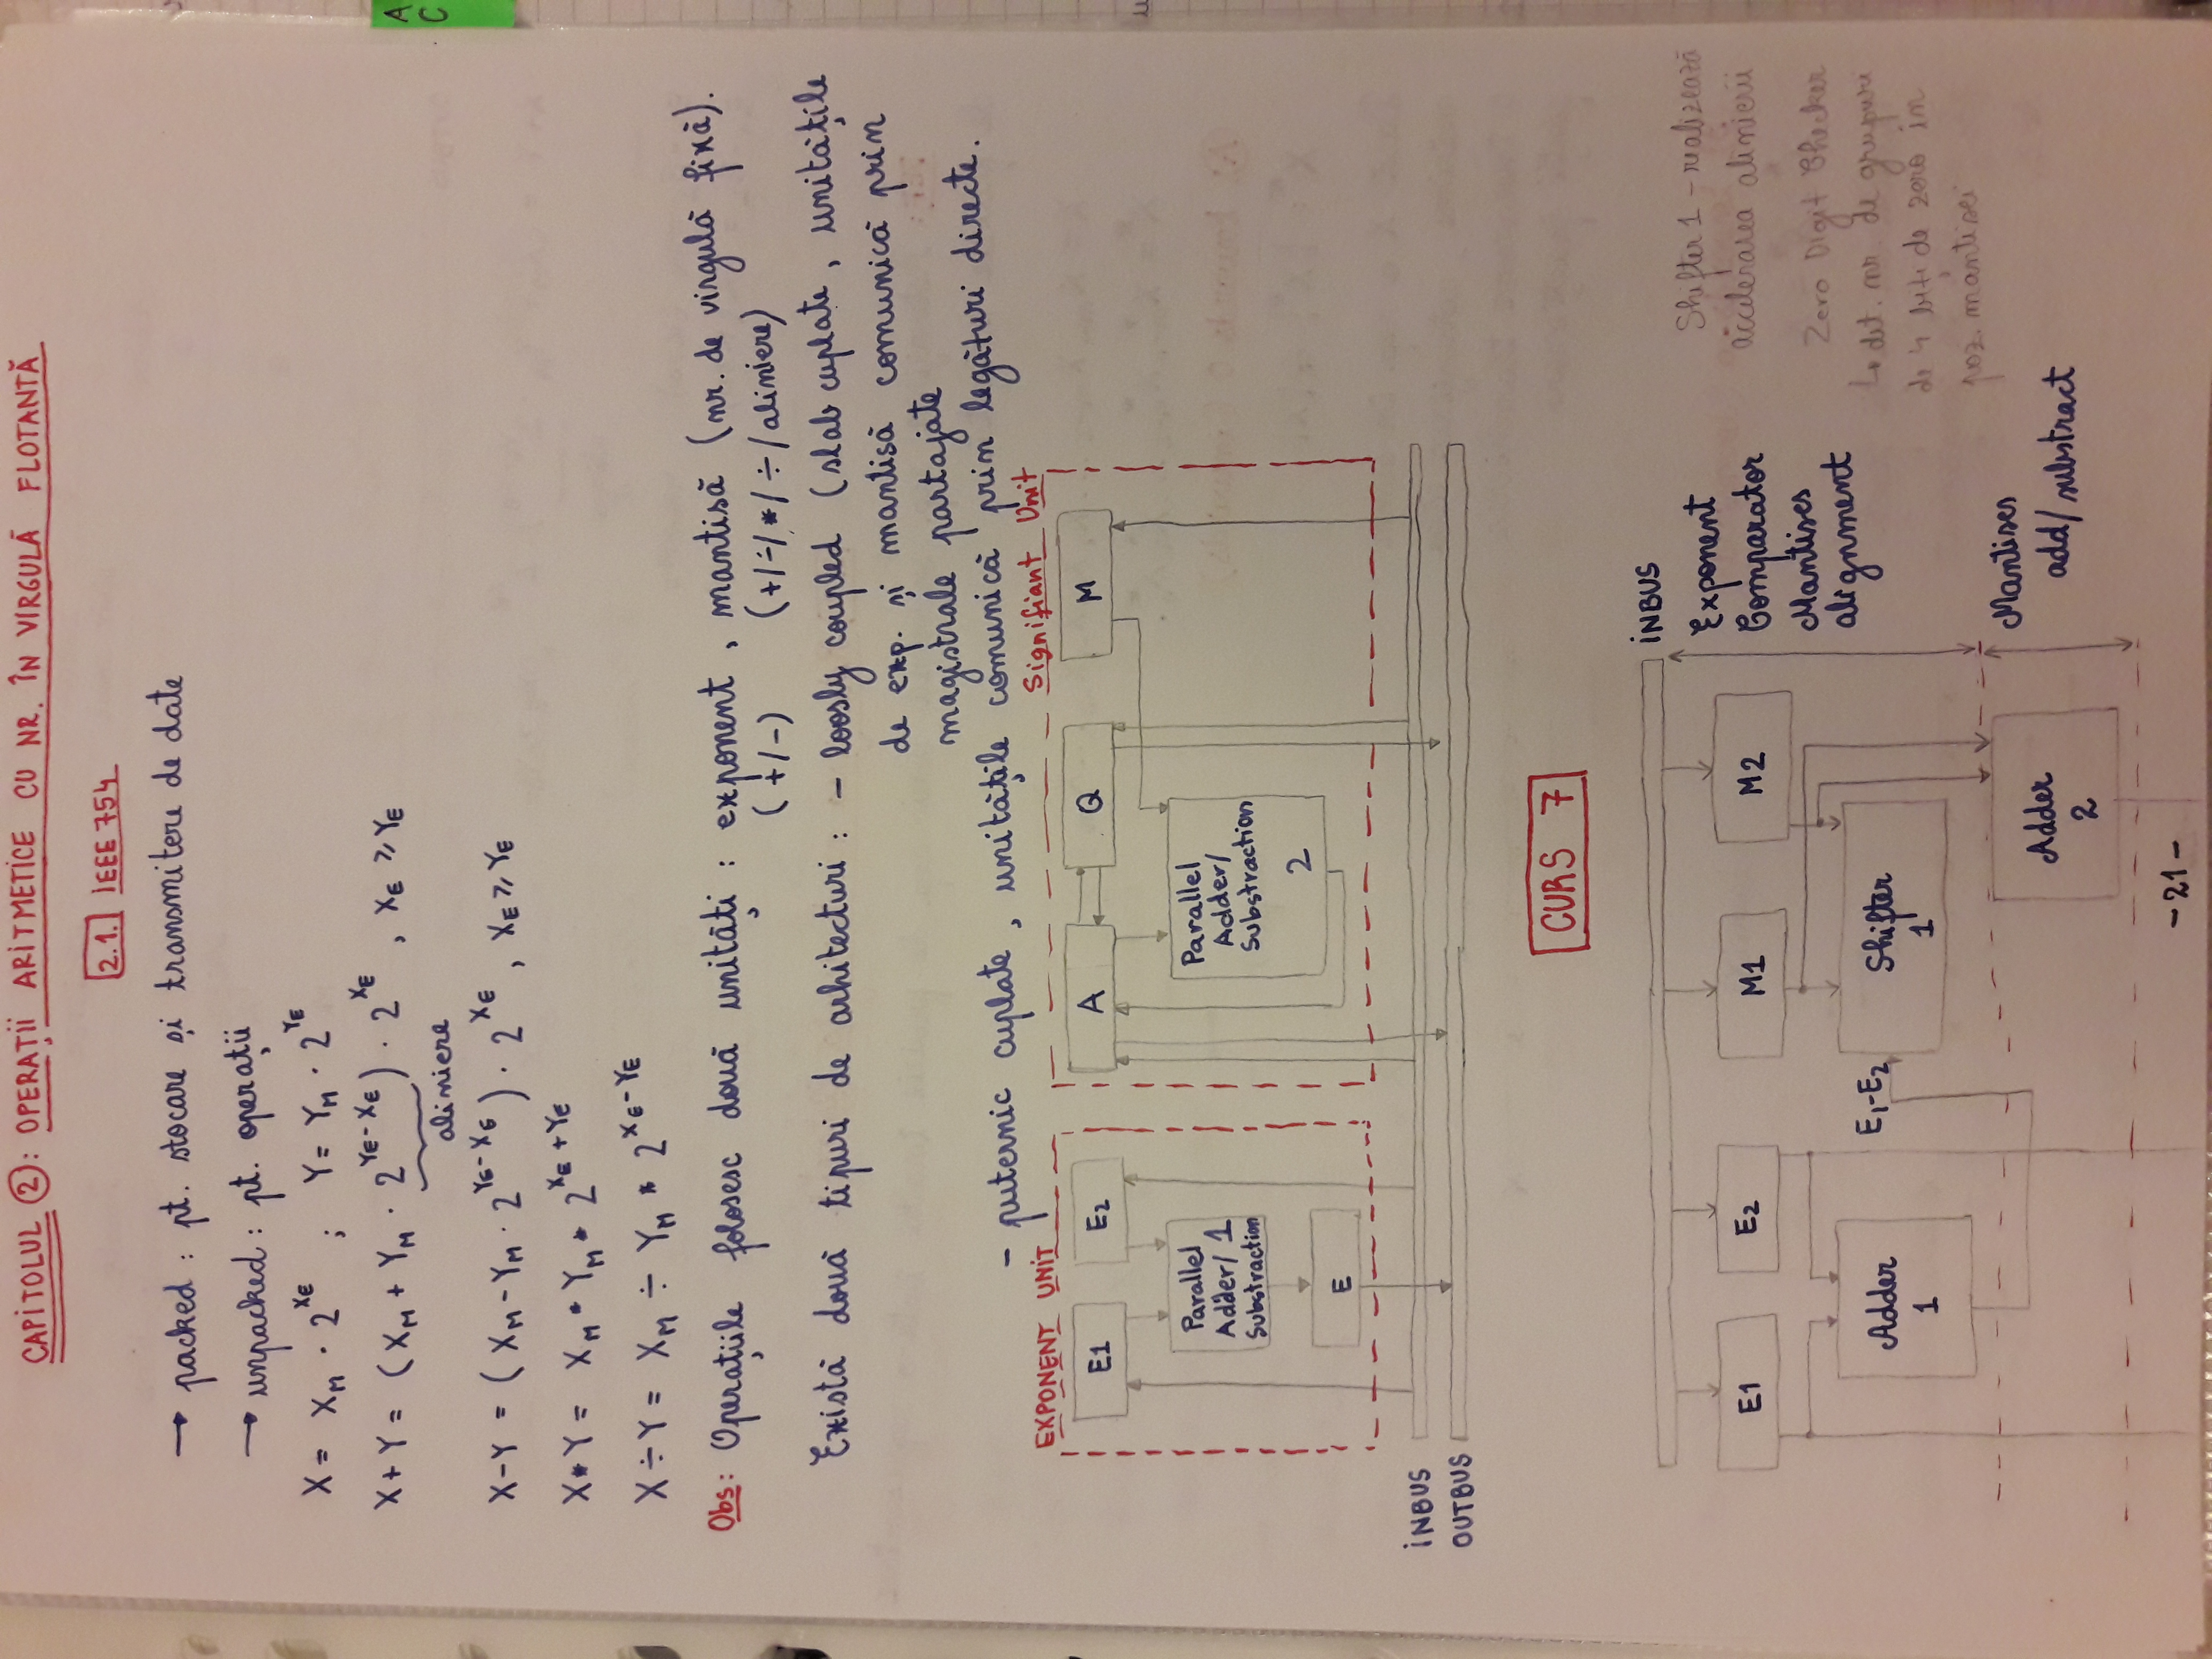 CAPITOLUL 2: OPERAȚII ARITMETICE CU NR. ÎN VIRGULĂ FLOTANTĂ
2.1. IEEE 754
→ packed : pt. stocare și transmitere de date
→ unpacked : pt. operații
X = X_M · 2^{X_E} ; Y = Y_M · 2^{Y_E}
X + Y = (X_M + Y_M · 2^{Y_E - X_E}) · 2^{X_E} , X_E ≥ Y_E
aliniere
X - Y = (X_M - Y_M · 2^{Y_E - X_E}) · 2^{X_E} , X_E ≥ Y_E
X * Y = X_M * Y_M * 2^{X_E + Y_E}
X ÷ Y = X_M ÷ Y_M * 2^{X_E - Y_E}
Obs: Operațiile folosesc două unități : exponent , mantisă (nr. de virgulă fixă).
(+/-) (+/-/*/÷/aliniere)
Există două tipuri de arhitecturi : - loosly coupled (slab cuplate, unitățile
de exp. și mantisă comunică prin
magistrale partajate
- puternic cuplate, unitățile comunică prin legături directe.
EXPONENT UNIT
Signifiant Unit
E1 E2 A Q M
Parallel
Adder/ 1
Substraction
E
Parallel
Adder/
Substraction
2
INBUS
OUTBUS
CURS 7
INBUS
E1 E2 M1 M2
Exponent
Comparator
Mantises
alignment
Shifter 1 - realizează
accelerarea alinierii
Zero Digit Checker
↳ det. nr. de grupuri
de 4 biți de zero în
poz. mantisei
Adder
1
E1-E2
Shifter
1
Adder
2
Mantises
add/substract
-21-
A
C